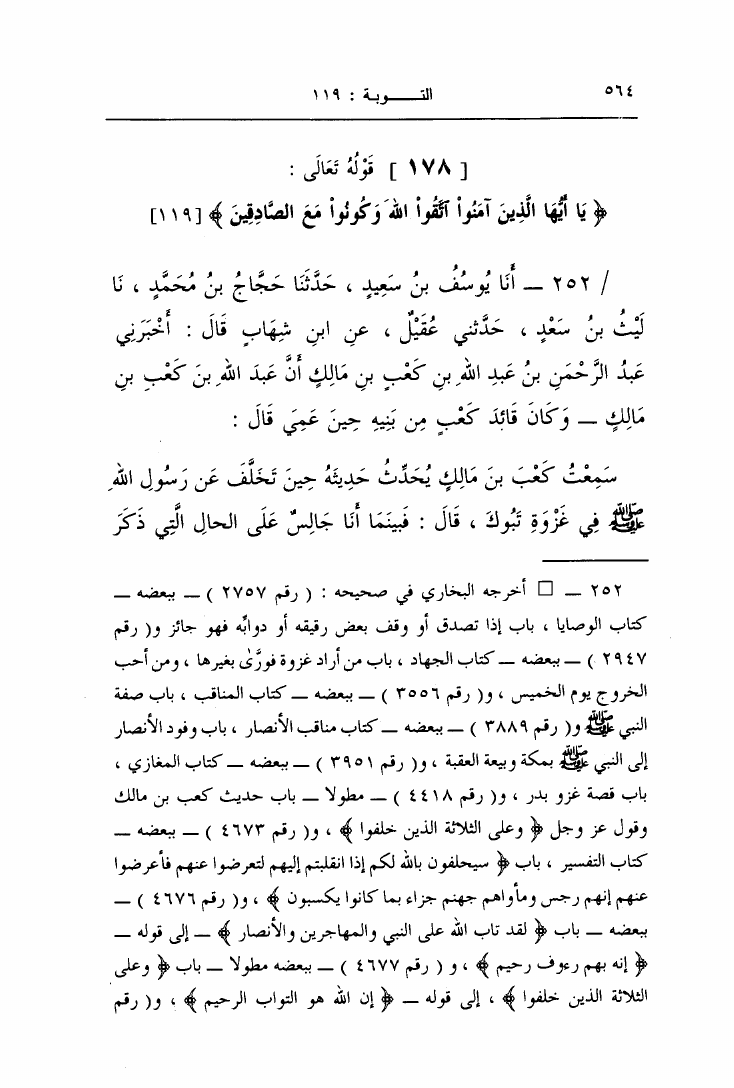 ٥٦٤ التـــوبـة : ١١٩
[ ١٧٨ ] قَوْلُهُ تَعَالَى :
﴿ يَا أَيُّهَا الَّذِينَ آمَنُواْ اتَّقُواْ اللهَ وَكُونُواْ مَعَ الصَّادِقِينَ ﴾ [١١٩]
/ ٢٥٢ ــ أَنَا يُوسُفُ بنُ سَعِيدٍ ، حَدَّثَنَا حَجَّاجُ بنُ مُحَمَّدٍ ، نَا
لَيْثُ بنُ سَعْدٍ ، حَدَّثني عُقَيْلٌ ، عنِ ابنِ شِهَابٍ قَالَ : أَخْبَرَنِي
عَبدُ الرَّحْمَنِ بنُ عَبدِ اللهِ بنِ كَعْبِ بنِ مَالِكٍ أَنَّ عَبدَ اللهِ بنَ كَعْبِ بنِ
مَالِكٍ ــ وَكَانَ قَائِدَ كَعْبٍ مِن بَنِيهِ حِينَ عَمِيَ قَالَ :
سَمِعْتُ كَعْبَ بنَ مَالِكٍ يُحَدِّثُ حَدِيثَهُ حِينَ تَخَلَّفَ عَن رَسُولِ اللهِ
ﷺ فِي غَزْوَةِ تَبُوكَ ، قَالَ : فَبينَمَا أَنَا جَالِسٌ عَلَى الحالِ الَّتِي ذَكَرَ
٢٥٢ ــ □ أخرجه البخاري في صحيحه : ( رقم ٢٧٥٧ ) ــ ببعضه ــ
كتاب الوصايا ، باب إذا تصدق أو وقف بعض رقيقه أو دوابِّه فهو جائز و( رقم
٢٩٤٧ ) ــ ببعضه ــ كتاب الجهاد ، باب من أراد غزوة فورَّىٰ بغيرها ، ومن أحب
الخروج يوم الخميس ، و( رقم ٣٥٥٦ ) ــ ببعضه ــ كتاب المناقب ، باب صفة
النبي ﷺ و( رقم ٣٨٨٩ ) ــ ببعضه ــ كتاب مناقب الأنصار ، باب وفود الأنصار
إلى النبي ﷺ بمكة وبيعة العقبة ، و( رقم ٣٩٥١ ) ــ ببعضه ــ كتاب المغازي ،
باب قصة غزو بدر ، و( رقم ٤٤١٨ ) ــ مطولا ــ باب حديث كعب بن مالك
وقول عز وجل ﴿ وعلى الثلاثة الذين خلفوا ﴾ ، و( رقم ٤٦٧٣ ) ــ ببعضه ــ
كتاب التفسير ، باب ﴿ سيحلفون بالله لكم إذا انقلبتم إليهم لتعرضوا عنهم فأعرضوا
عنهم إنهم رجس ومأواهم جهنم جزاء بما كانوا يكسبون ﴾ ، و( رقم ٤٦٧٦ ) ــ
ببعضه ــ باب ﴿ لقد تاب الله على النبي والمهاجرين والأنصار ﴾ ــ إلى قوله ــ
﴿ إنه بهم رءوف رحيم ﴾ ، و ( رقم ٤٦٧٧ ) ــ ببعضه مطولا ــ باب ﴿ وعلى
الثلاثة الذين خلفوا ﴾ ، إلى قوله ــ ﴿ إن الله هو التواب الرحيم ﴾ ، و( رقم